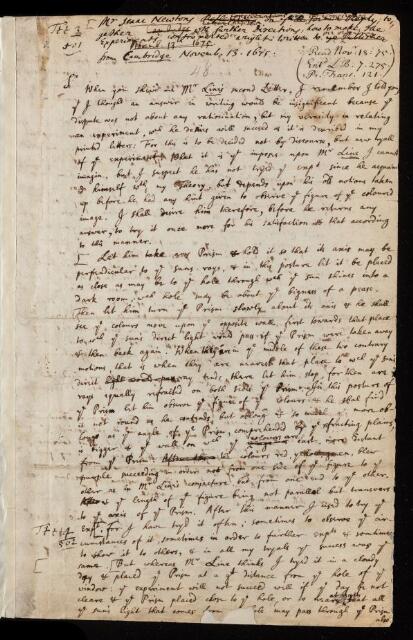 Mr Isaac Newtons
gether with further directions, how to make the
experiments controverted
from Cambridge Novemb. 13. 1675.
Read Nov: 18: 75
Ent^d L.B. 7. 275
Pr. Trans. 121.
48
When you shewed me Mr Lines second Letter, I remember I told you
yt I thought an answer in writing would be insignificant because ye
dispute was not about any ratiocination, but my veracity in relating
an experiment, wch he denies will succeed as it is described in my
printed letters: For this is to be decided not by discourse, but new tryall
of ye experiment. What it is yt imposes upon Mr Line I cannot
imagin, but I suspect he has not tryed ye expt since he acquainted
himself wth my Theory, but depends upon his old notions taken
up before he had any hint given to observe ye figure of ye coloured
image. I shall desire him therefore, before he returns any
answer, to try it once more for his satisfaction & that according
to this manner.
Let him take any Prism & hold it so that its axis may be
perpendicular to ye suns rays, & in this posture let it be placed
as close as may be to ye hole through wch ye sun shines into a
dark room wch hole may be about ye bigness of a pease.
Then let him turn ye Prism slowly about its axis & he shall
see ye colours move upon ye opposite wall first towards that place
to wch ye suns direct light would pass if ye Prism were taken away
& then back again. When they are in ye middle of these two contrary
motions, that is when they are nearest that place to wch ye suns
direct ray tends, there let him stop for then are ye
rays equally refracted on both sides ye Prism. In this posture of
ye Prism let him observe ye figure of ye colours & he shall find
it not round as he contends, but oblong & so much ye more ob-
long as ye angle of ye Prism comprehended by ye refracting plains,
is bigger & ye wall on wch ye colours are cast, more distant
from ye Prism ye colours red, yellow, green, blew
purple succeeding in order not from one side of ye figure to ye
other as in Mr Lines conjecture, but from one end to ye other.
& ye length of ye figure being not parallel but transverse
to ye axis of ye Prism. After this manner I used to try ye
Expt: For I have tryd it often; sometimes to observe ye cir-
cumstances of it, sometimes in order to further expts & sometimes
to show it to others, & in all my tryals ye success was ye
same. But whereas Mr Line thinks I tryed it in a cloudy
day & placed ye Prism at a gt distance from ye hole of ye
window ye experiment will not succeed well if ye day be not
cleare & ye Prism placed close to ye hole, or so neare at least yt all
ye suns light that comes from ye hole may pass through ye Prism
also